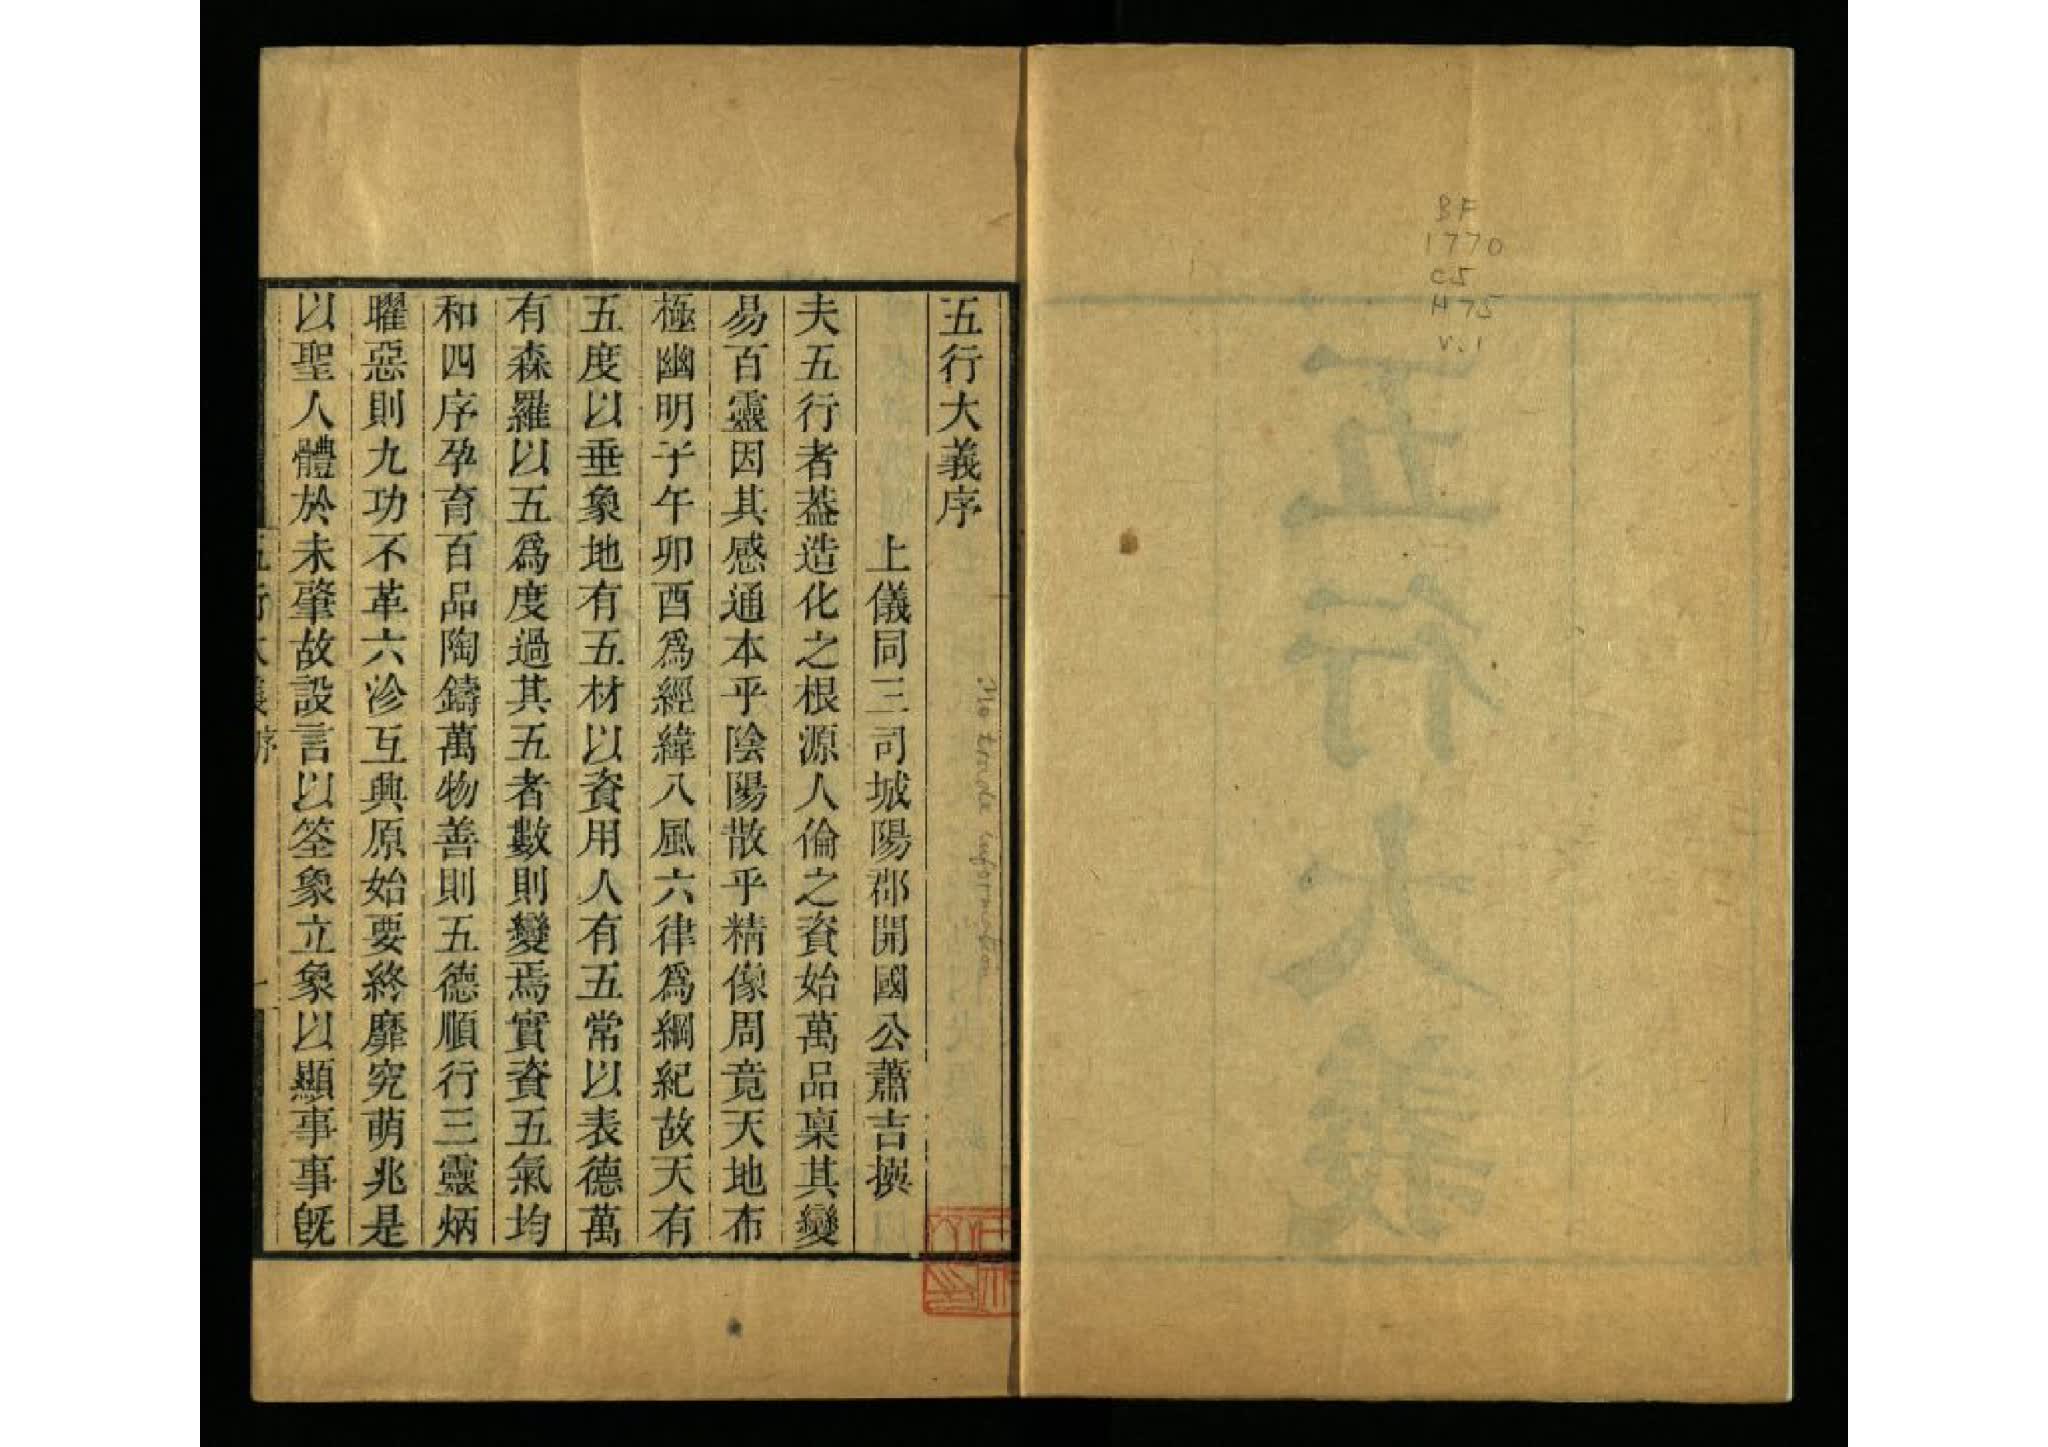 BF
1770
C5
H75
v.1
五行大義
五行大義序
上儀同三司城陽郡開國公蕭吉撰
夫五行者葢造化之根源人倫之資始萬品稟其變
易百靈因其感通本乎陰陽散乎精像周竟天地布
極幽明子午卯酉爲經緯八風六律爲綱紀故天有
五度以垂象地有五材以資用人有五常以表德萬
有森羅以五爲度過其五者數則變焉實資五氣均
和四序孕育百品陶鑄萬物善則五德順行三靈炳
曜惡則九功不革六沴互興原始要終靡究萌兆是
以聖人體於未肇故設言以筌象立象以顯事事旣
五行大義序
一
No trade information